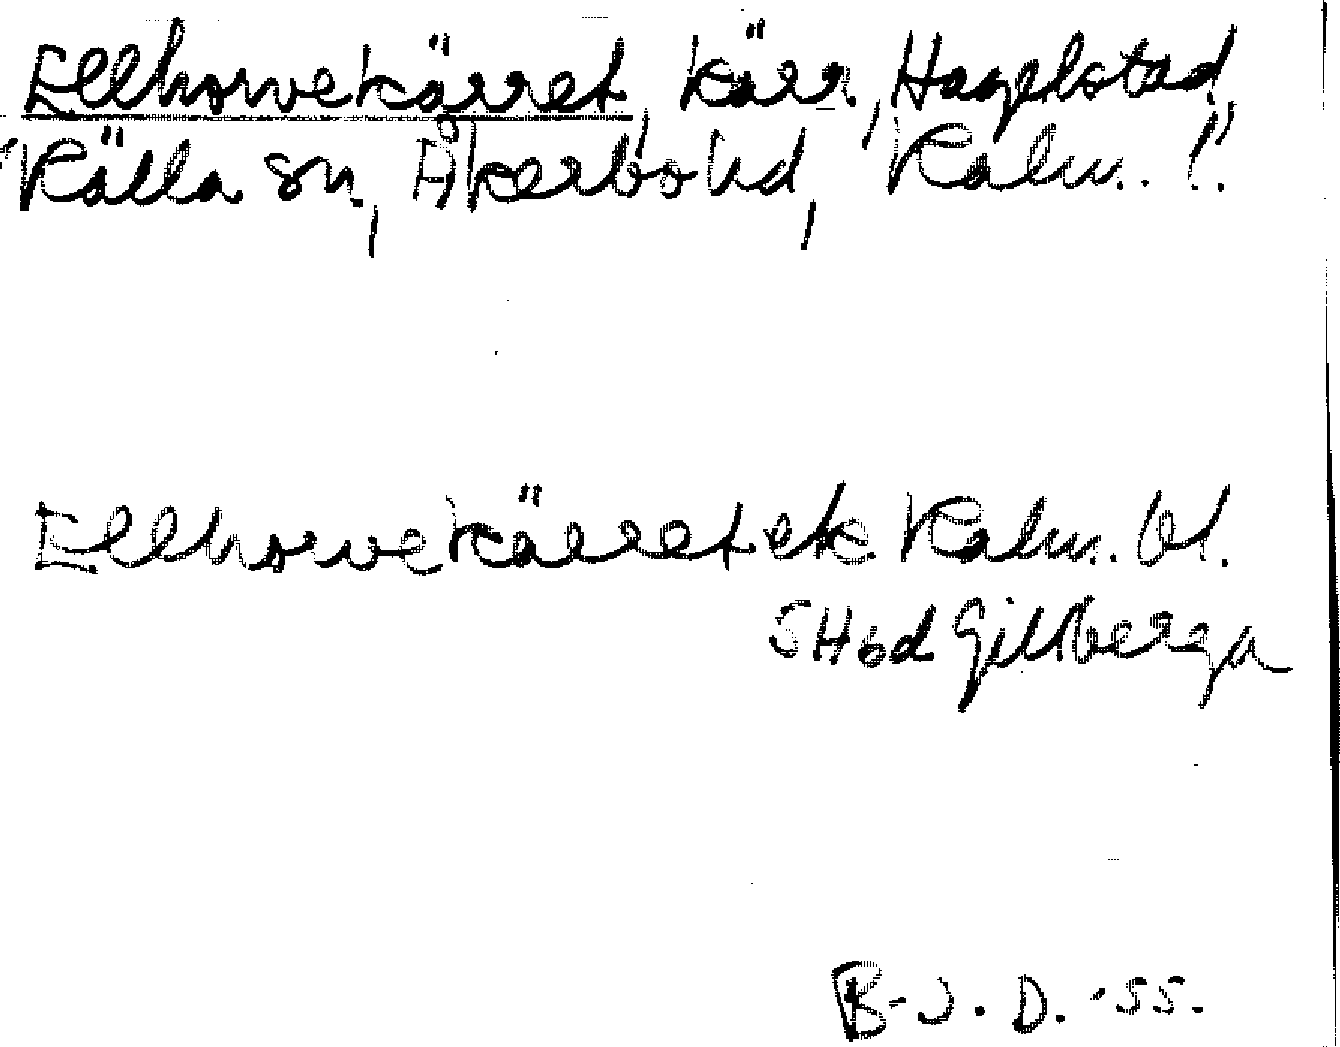 Ellhorvekärret, kärr, Hagelstad,
Källa sn, Åkerbo hd, Kalm. l.
Ellhorvekärret ek Kalm. bl.
5H6d Gillberga
B-J. D. -55.